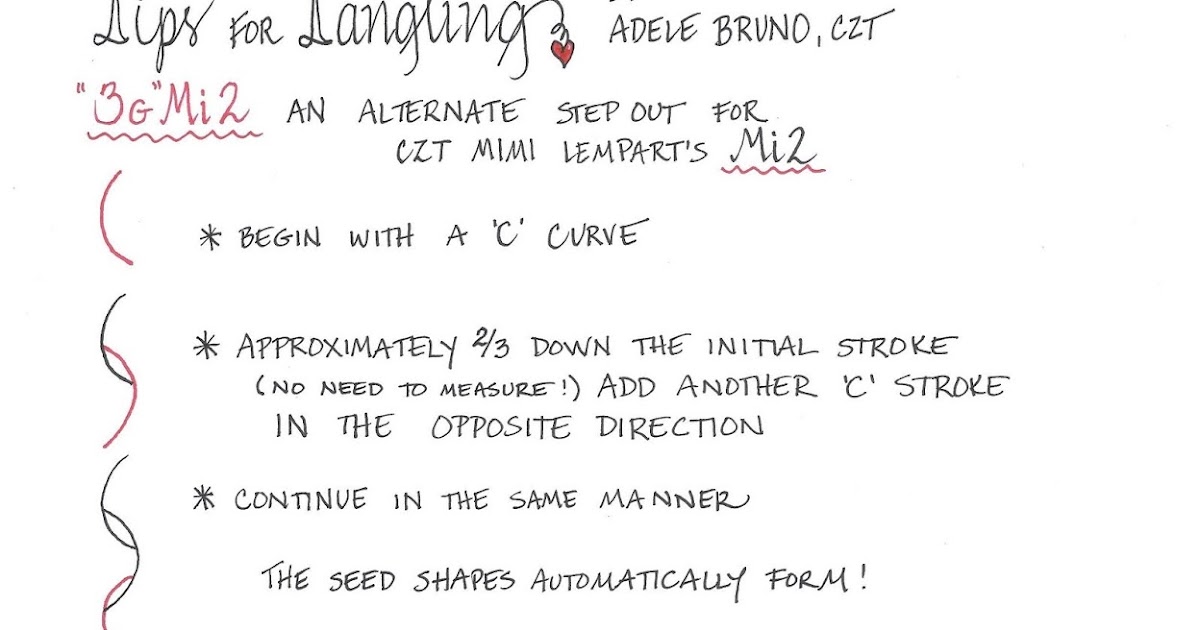 Tips FOR Tangling ADELE BRUNO, CZT
"3G" Mi2 AN ALTERNATE STEP OUT FOR
CZT MIMI LEMPART'S Mi2
* BEGIN WITH A 'C' CURVE
* APPROXIMATELY 2/3 DOWN THE INITIAL STROKE
(NO NEED TO MEASURE!) ADD ANOTHER 'C' STROKE
IN THE OPPOSITE DIRECTION
* CONTINUE IN THE SAME MANNER
THE SEED SHAPES AUTOMATICALLY FORM!